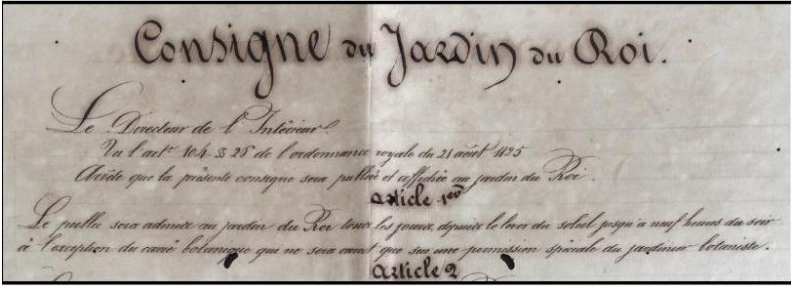 Consigne du Jardin du Roi.
Le Directeur de l'Intérieur
Vu l'art. 104 § 26 de l'ordonnance royale du 21 août 1825
Arrête que la présente consigne sera publiée et affichée au jardin du Roi.
Article 1er
Le public sera admis au jardin du Roi tous les jours, depuis le lever du soleil jusqu'à neuf heures du soir
à l'exception du carré botanique qui ne sera ouvert que sur une permission spéciale du jardinier botaniste.
Article 2